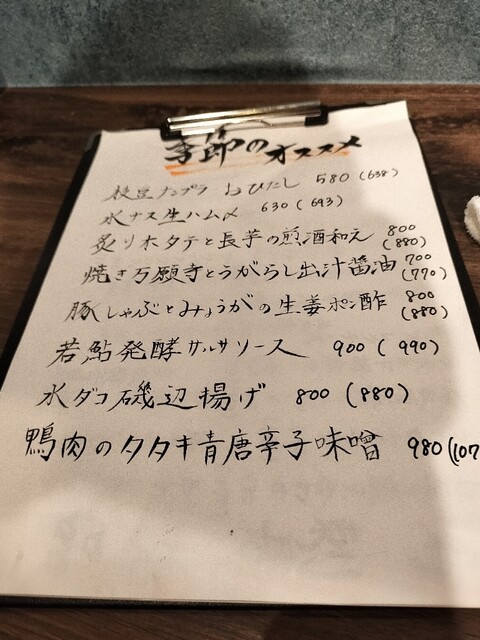 季節のオススメ
枝豆ナンプラーおひたし 580(638)
水ナス生ハム〆 630(693)
炙りホタテと長芋の煎酒和え 800(880)
焼き万願寺とうがらし出汁醤油 700(770)
豚しゃぶとみょうがの生姜ポン酢 800(880)
若鮎発酵サルサソース 900(990)
水ダコ磯辺揚げ 800(880)
鴨肉のタタキ青唐辛子味噌 980(107